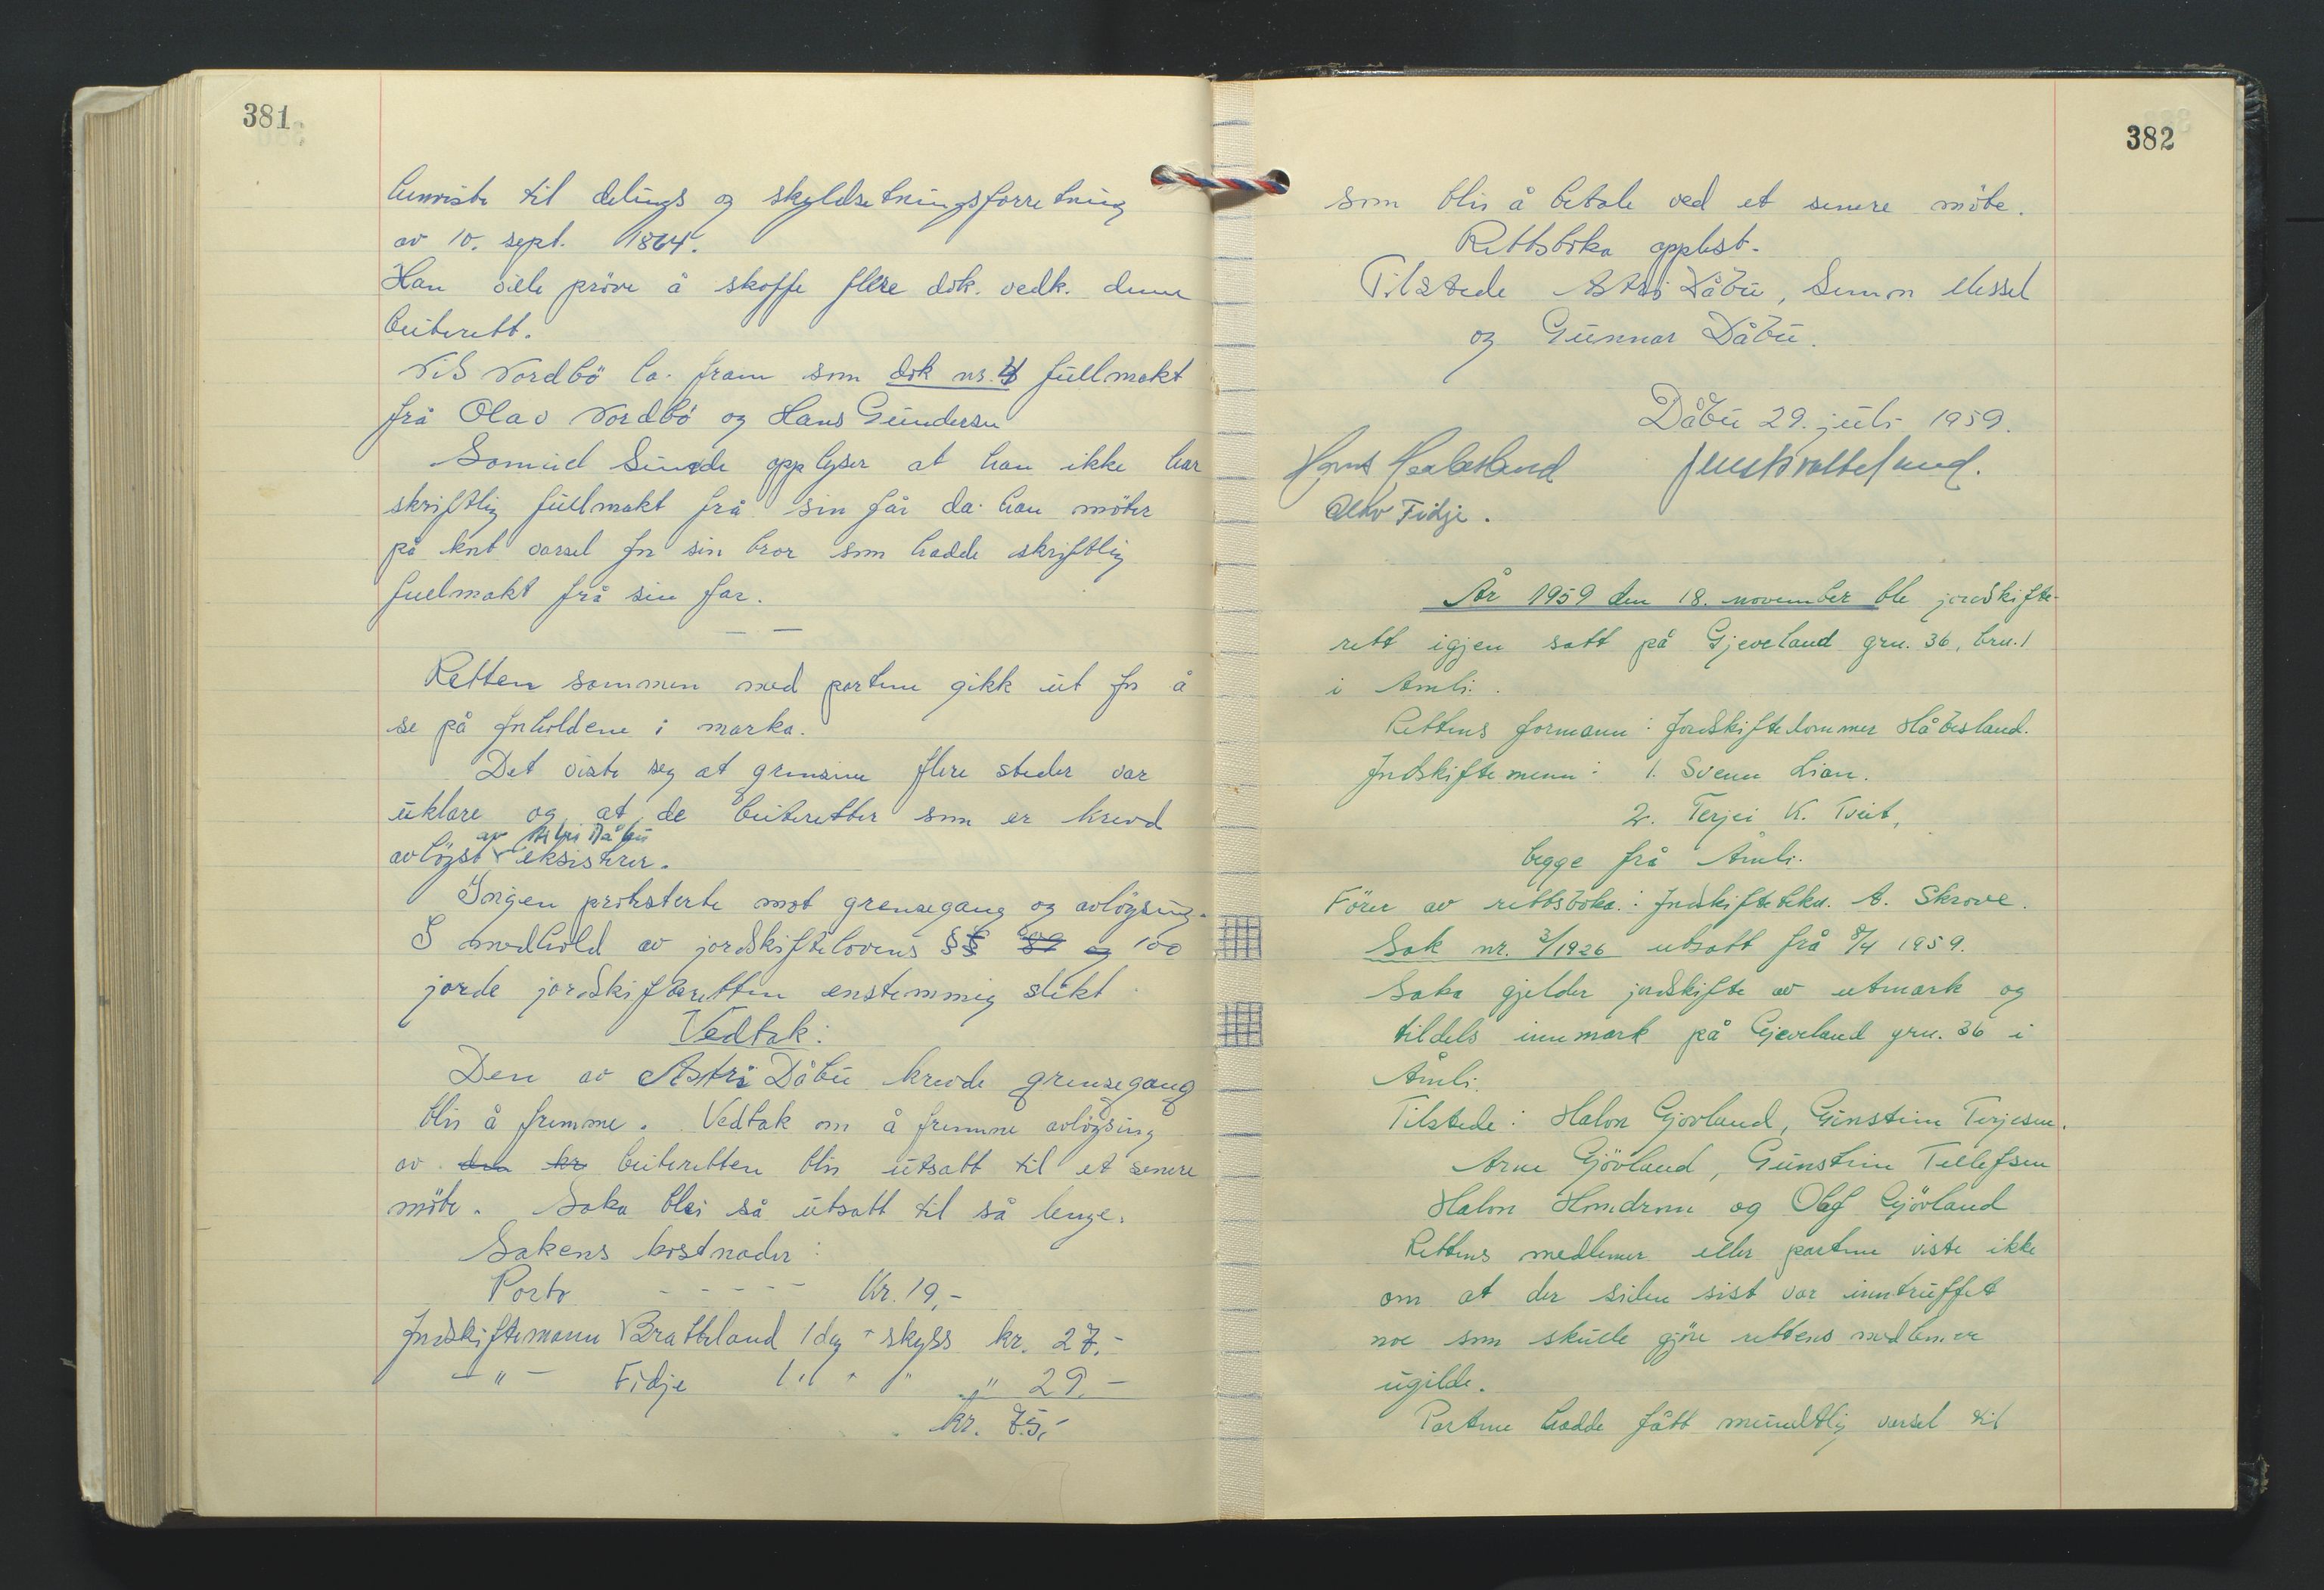 381
henviste til delings og skyldsetningsforretning
av 10. sept. 1864.
Han ville pröve å skaffe flere dok. vedk. denne
beiterett.
Nils Nordbö la fram som dok nr. 4 fullmakt
frå Olav Nordbö og Hans Gundersen
Samuel Sunde opplyser at han ikke har
skriftlig fullmakt frå sin far da han möter
på kort varsel for sin bror som hadde skriftlig
fullmakt frå sin far.
Retten sammen med partene gikk ut for å
se på forholdene i marka.
Det viste seg at grensene flere steder var
uklare og at de beiteretter som er krevd
av Astri Dåbu
avlöyst eksisterer.
Ingen protesterte mot grensegang og avlöysing.
I medhold av jordskiftelovens §§ 100
jorde jordskifteretten enstemmig slikt
Vedtak:
Den av Astri Dåbu krevde grensegang
blir å fremme. Vedtak om å fremme avlöysing
av den kr beiteretten blir utsatt til et senere
möte. Saka blei så utsatt til så lenge.
Sakens kostnader:
Porto - - - - - Kr. 19,-
Jordskiftemann Bratteland 1 dag + skyss kr. 27.-
- " - Fidje 1 " + " " 29.-
kr. 75,-
382
som blir å betale ved et senere möte.
Rettsboka opplest.
Tilstede Astri Dåbu, Simon Messel
og Gunnar Dåbu.
Dåbu 29. juli 1959.
Olav Fidje.
År 1959 den 18. november ble jordskifte-
rett igjen satt på Gjeveland grn. 36, brn. 1
i Åmli.
Rettens formann: Jordskiftedommer Håbesland.
Jordskiftemenn: 1. Svenn Lian.
2. Terjei K. Tveit,
begge frå Åmli.
Förer av rettsboka: Jordskiftetekn. A. Skrove.
Sak nr. 3/1926 utsatt frå 8/4 1959.
Saka gjelder jordskifte av utmark og
tildels innmark på Gjeveland grn. 36 i
Åmli.
Tilstede: Halvor Gjövland, Gunstein Terjesen.
Arne Gjövland, Gunstein Tellefsen
Halvor Homdrom og Olaf Gjövland
Rettens medlemer eller partene viste ikke
om at der siden sist var inntruffet
noe som skulle gjöre rettens medlemer
ugilde.
Partene hadde fått mundtlig varsel til